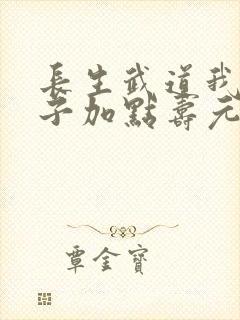 長生武道我
子加點壽元
覃金寶